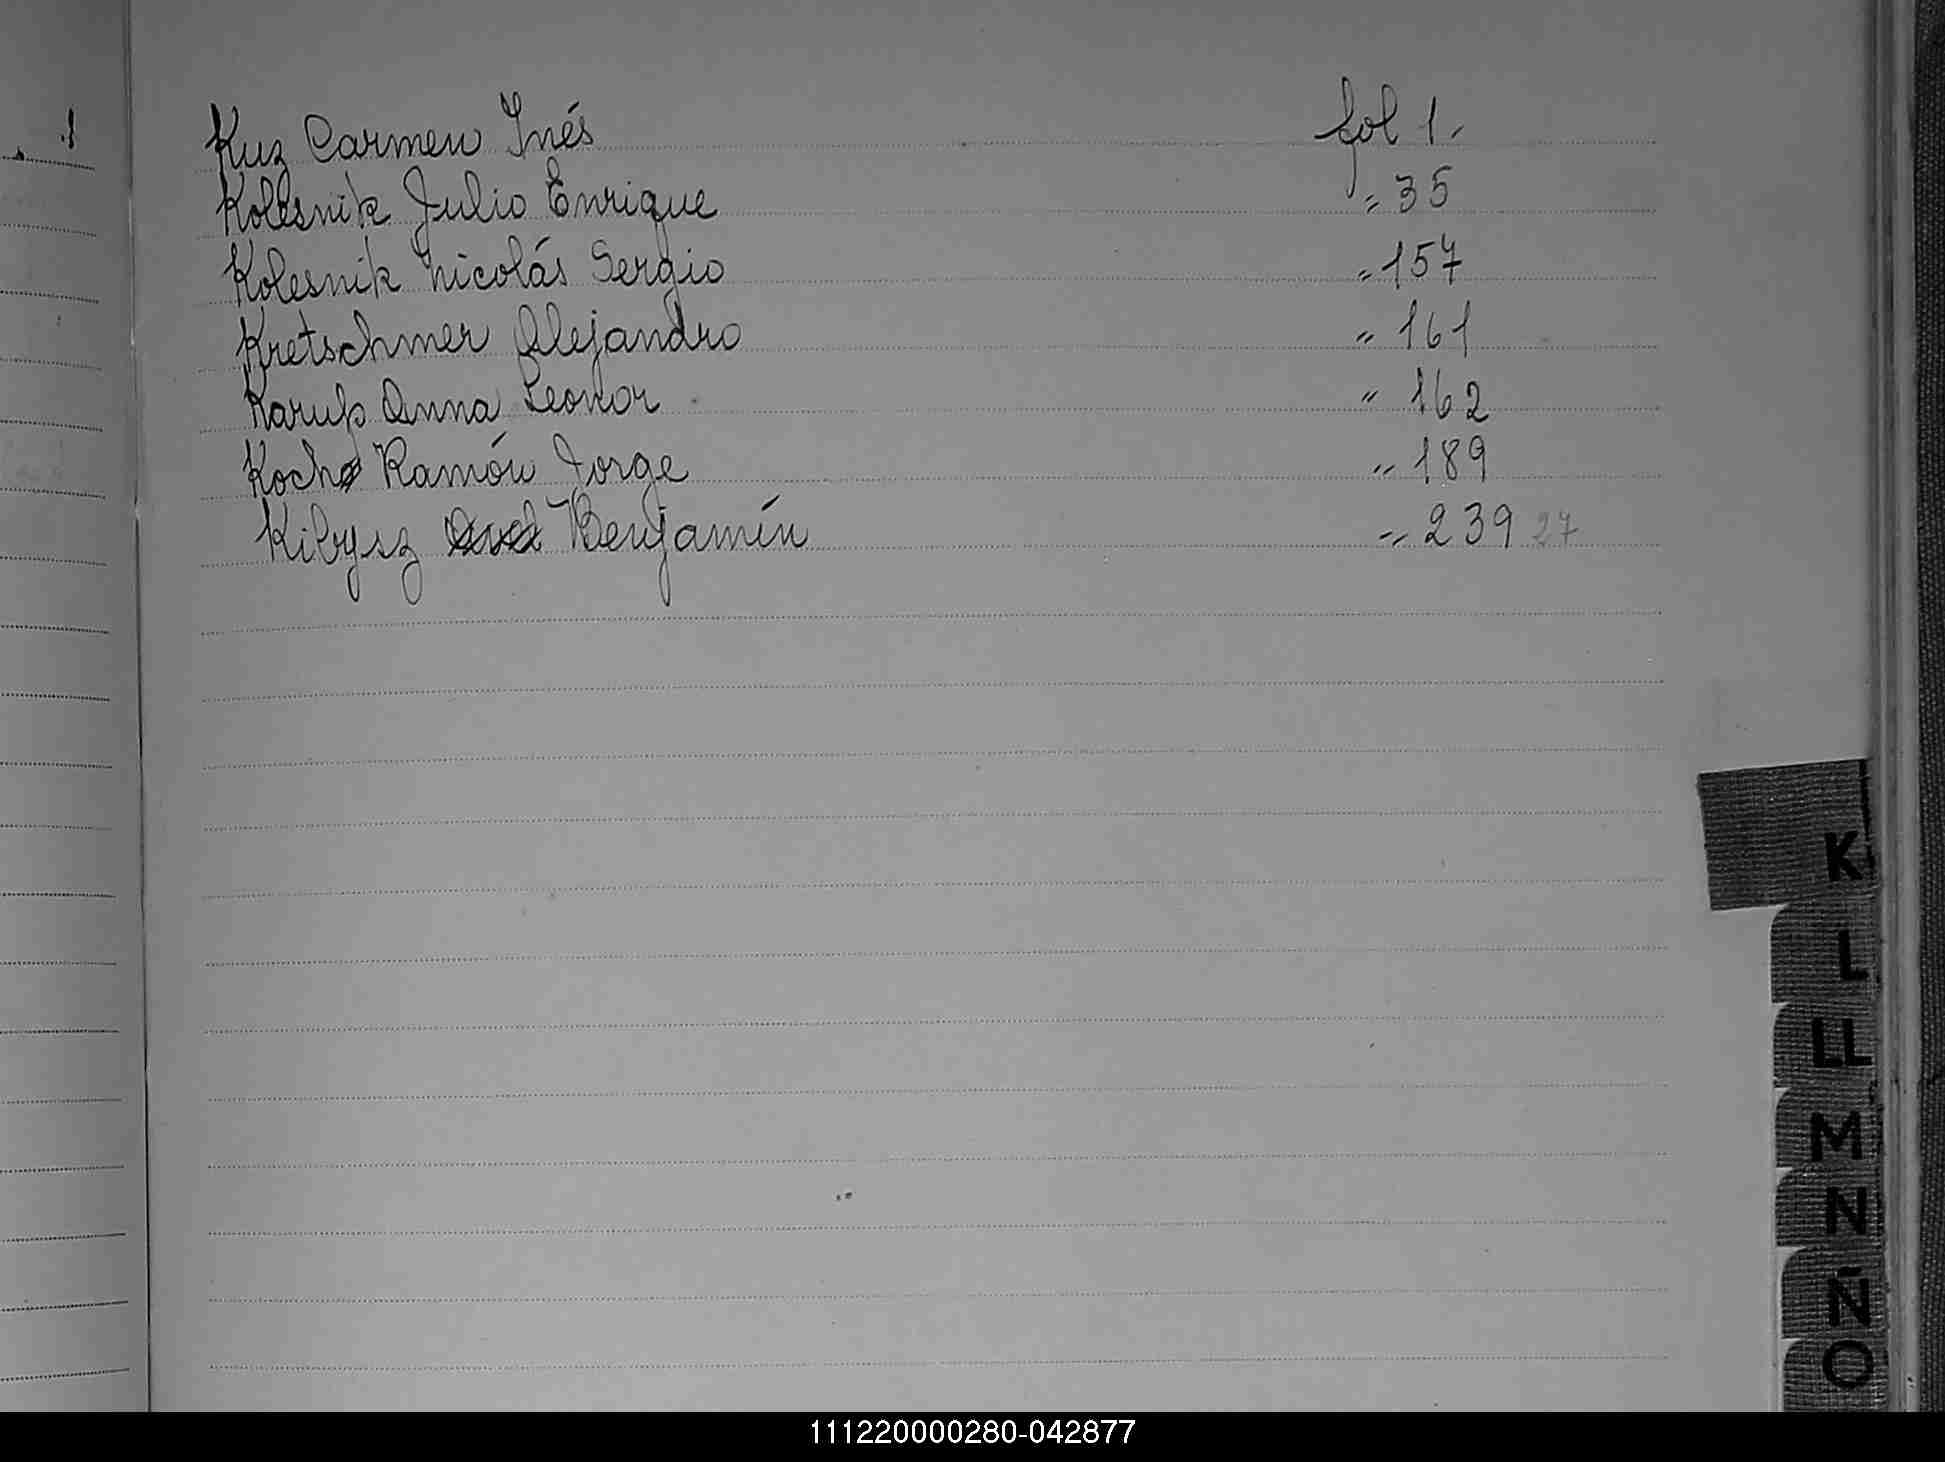 Kuz Carmen Inés fol 1.-
Kolesnik Julio Enrique " 35
Kolesnik Nicolás Sergio " 157
Kretschmer Alejandro " 161
Karup Anna Leonor " 162
Koch Ramón Jorge " 189
Kibysz Benjamín " 239 27
K
L
LL
M
N
Ñ
O
111220000280-042877